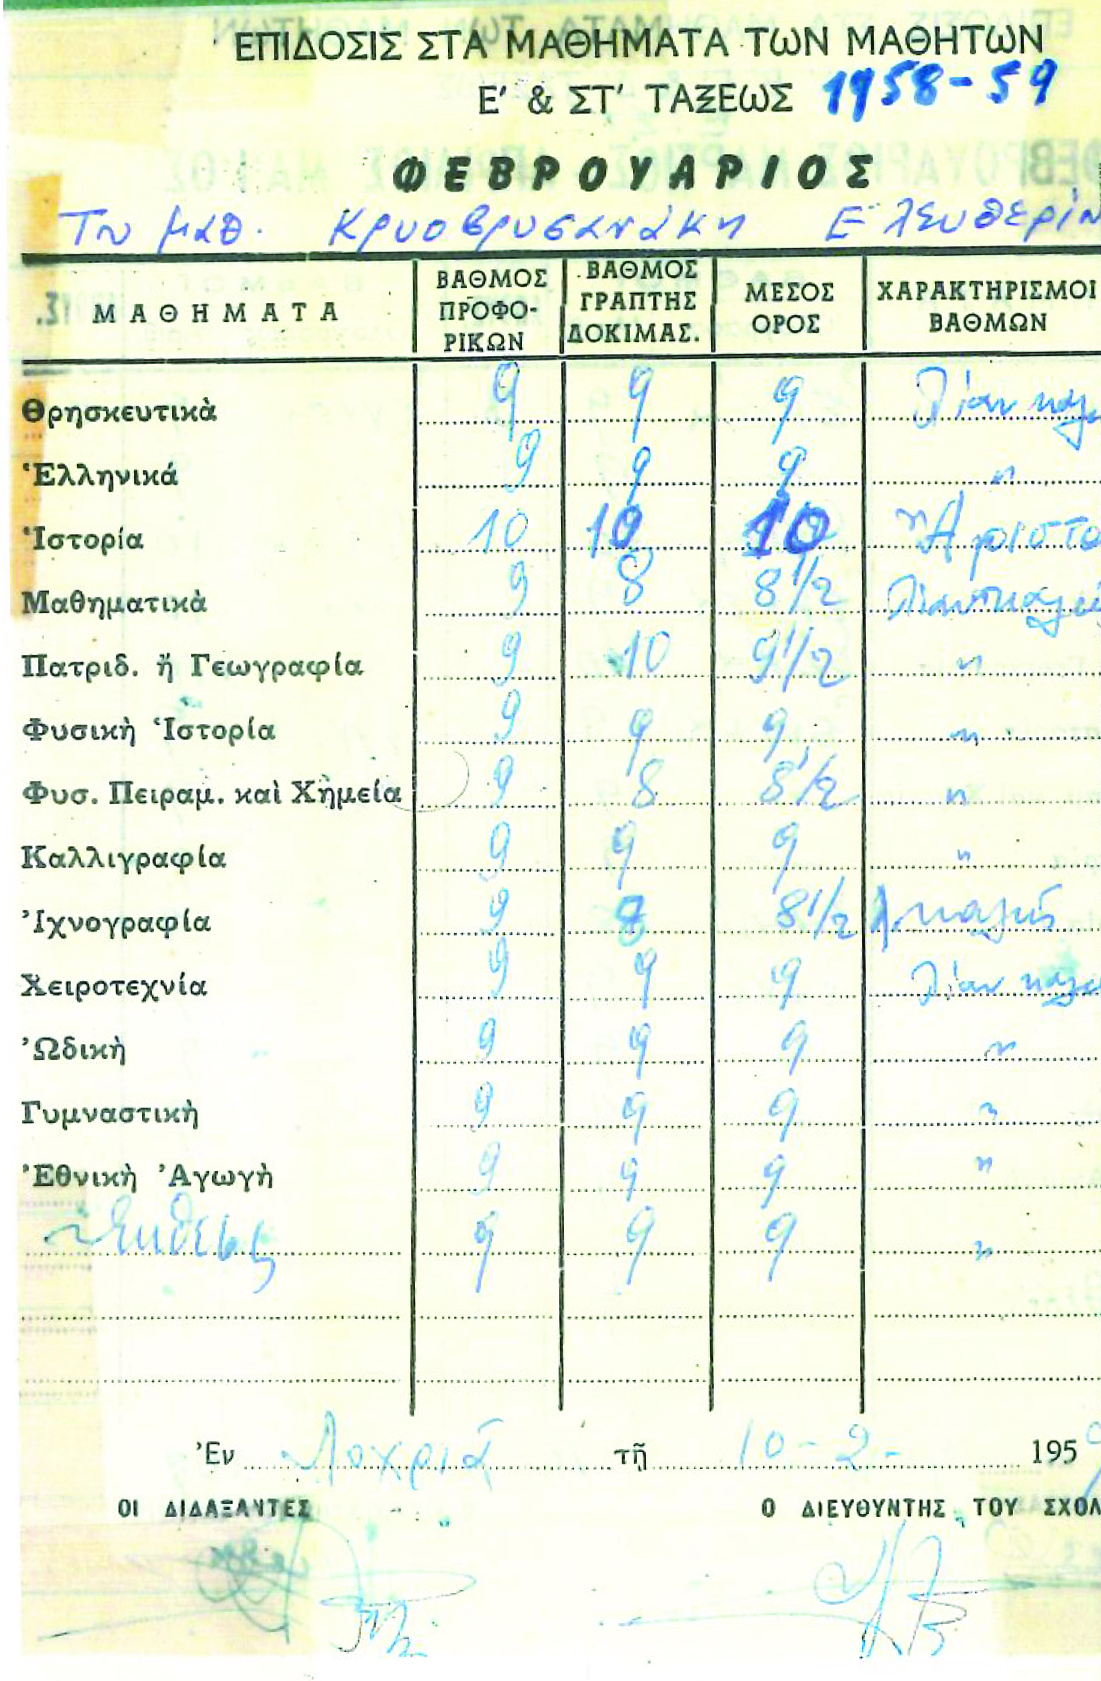 ΕΠΙΔΟΣΙΣ ΣΤΑ ΜΑΘΗΜΑΤΑ ΤΩΝ ΜΑΘΗΤΩΝ
Ε' & ΣΤ' ΤΑΞΕΩΣ 1958-59
ΦΕΒΡΟΥΑΡΙΟΣ
Του μαθ. Κρυοβρυσανάκη Ελευθερίου
ΜΑΘΗΜΑΤΑ ΒΑΘΜΟΣ ΠΡΟΦΟ- ΡΙΚΩΝ ΒΑΘΜΟΣ ΓΡΑΠΤΗΣ ΔΟΚΙΜΑΣ. ΜΕΣΟΣ ΟΡΟΣ ΧΑΡΑΚΤΗΡΙΣΜΟΙ ΒΑΘΜΩΝ
Θρησκευτικὰ 9 9 9 Λίαν καλ
Ἑλληνικά 9 9 9 "
Ἱστορία 10 10 10 " Αριστα
Μαθηματικὰ 9 8 8 1/2 Λίαν καλώς
Πατριδ. ἢ Γεωγραφία 9 10 9 1/2 "
Φυσικὴ Ἱστορία 9 9 9 "
Φυσ. Πειραμ. καὶ Χημεία 9 8 8 1/2 "
Καλλιγραφία 9 9 9 "
Ἰχνογραφία 9 8 8 1/2 Λ καλώς
Χειροτεχνία 9 9 9 Λίαν καλ
Ὠδικὴ 9 9 9 "
Γυμναστικὴ 9 9 9 "
Ἐθνικὴ Ἀγωγὴ 9 9 9 "
Εκθεσις 9 9 9 "
Ἐν Λοχριά τῇ 10-2- 1959
ΟΙ ΔΙΔΑΞΑΝΤΕΣ Ο ΔΙΕΥΘΥΝΤΗΣ ΤΟΥ ΣΧΟΛ